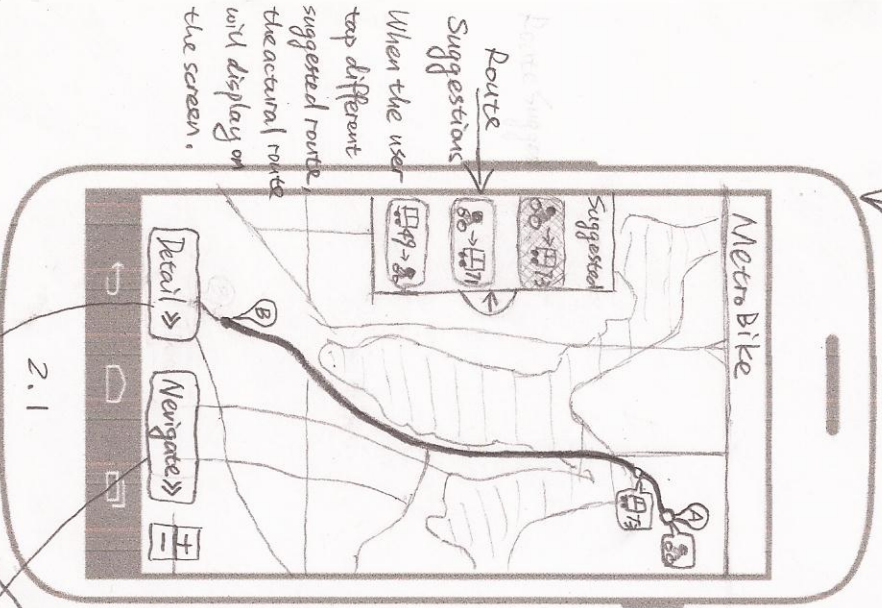 Route
Suggestions
When the user
tap different
suggested route,
the actural route
will display on
the screen.
MetroBike
Suggested
→ 73
→ 71
49 →
A
73
B
Detail »
Nevigate »
+
−
2.1